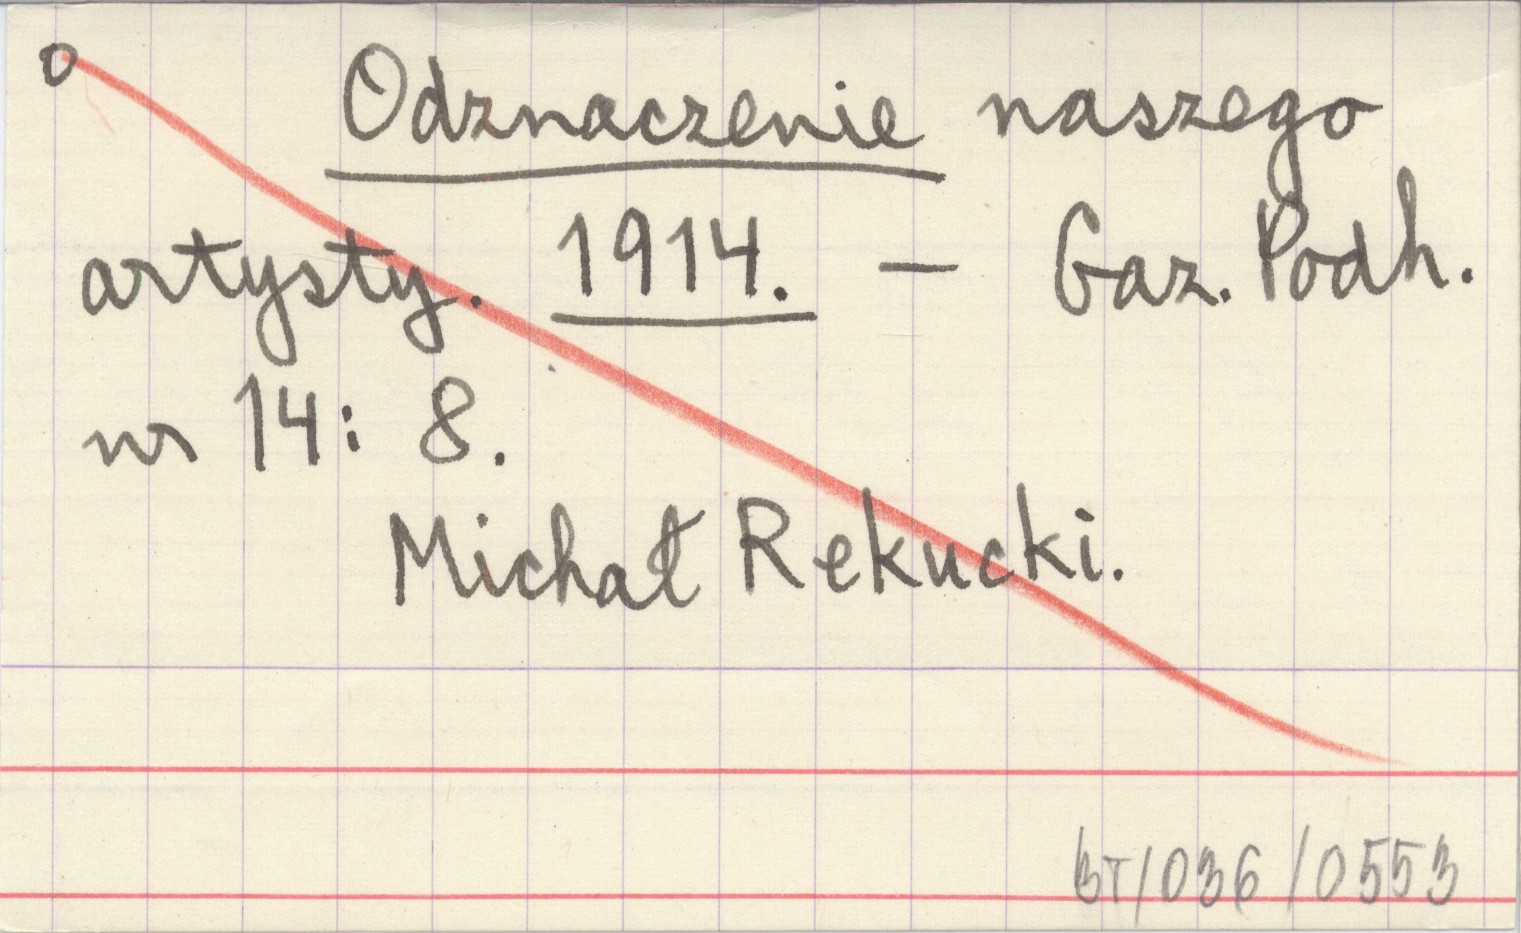 o
Odznaczenie naszego
artysty. 1914. — Gaz. Podh.
nr 14: 8.
Michał Rekucki.
BT/036/0553